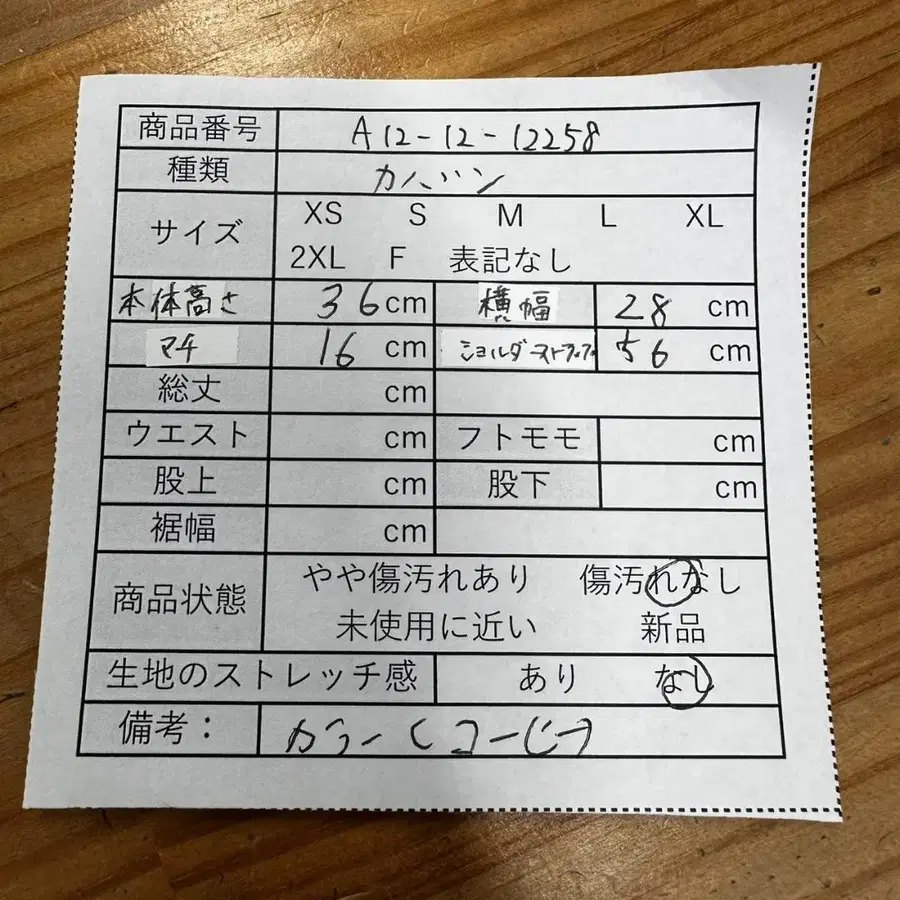 商品番号 A12-12-12258
種類 カバン
サイズ XS S M L XL
2XL F 表記なし
本体高さ 36cm 横幅 28 cm
マチ 16 cm ショルダーストラップ 56 cm
総丈 cm
ウエスト cm フトモモ cm
股上 cm 股下 cm
裾幅 cm
商品状態 やや傷汚れあり 傷汚れなし
未使用に近い 新品
生地のストレッチ感 あり なし
備考： カラー